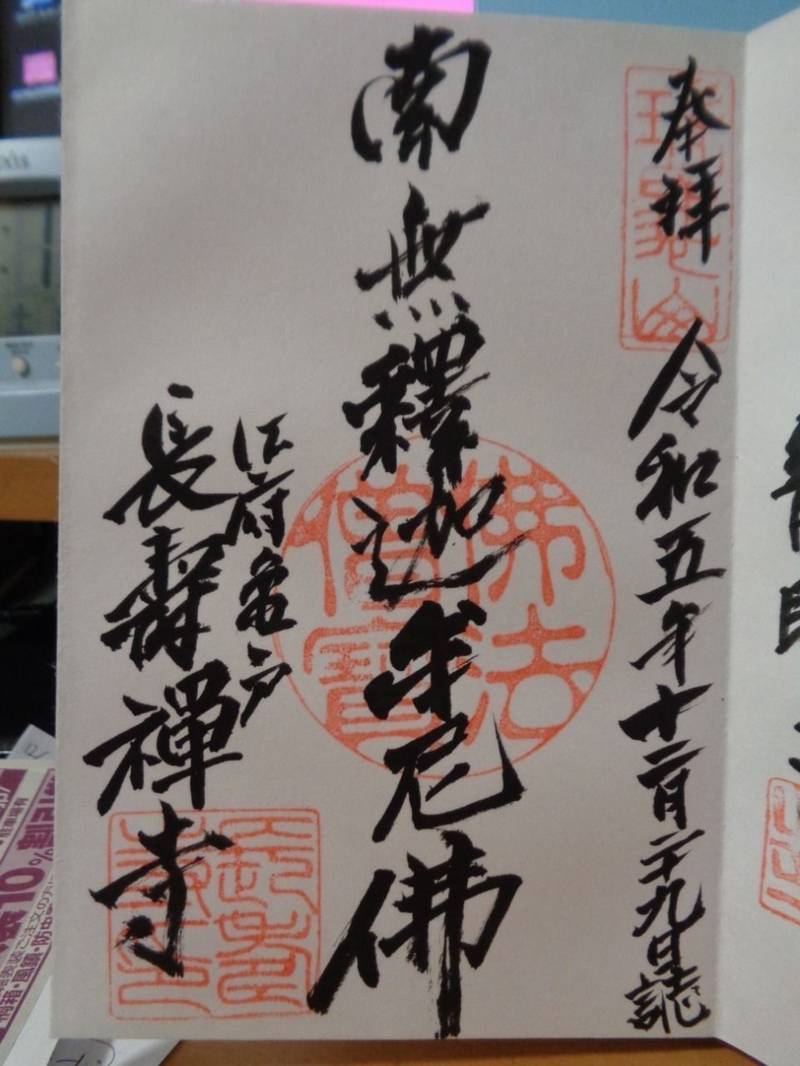 奉拝
令和五年十二月二十九日誌
南無釋迦牟尼佛
佛法僧寳
江府亀戸
長壽禪寺
10%割引